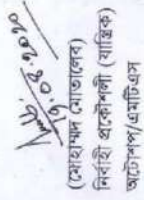 ১৭.০৫.২০১০
(মোহাম্মদ মোতালেব)
নির্বাহী প্রকৌশলী (যান্ত্রিক)
অটোগ্যাস/এমটিএস